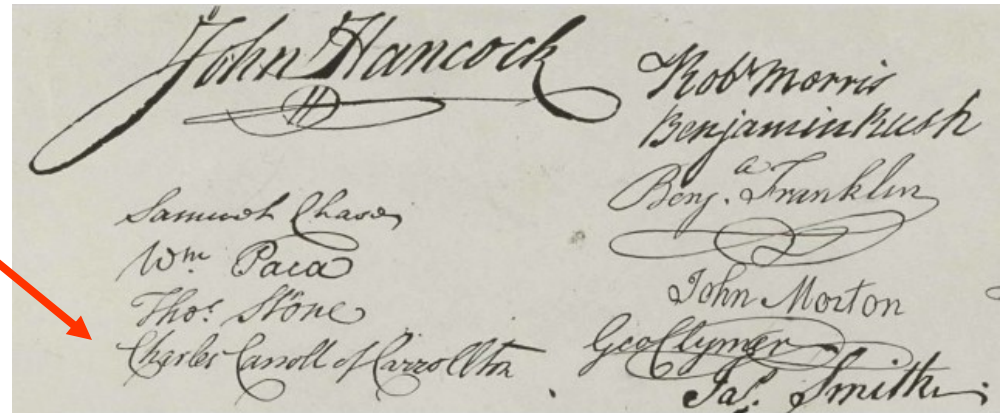 John Hancock
Samuel Chase
Wm Paca
Thos Stone
Charles Carroll of Carrollton
Robt Morris
Benjamin Rush
Benja. Franklin
John Morton
Geo Clymer
Jas. Smith